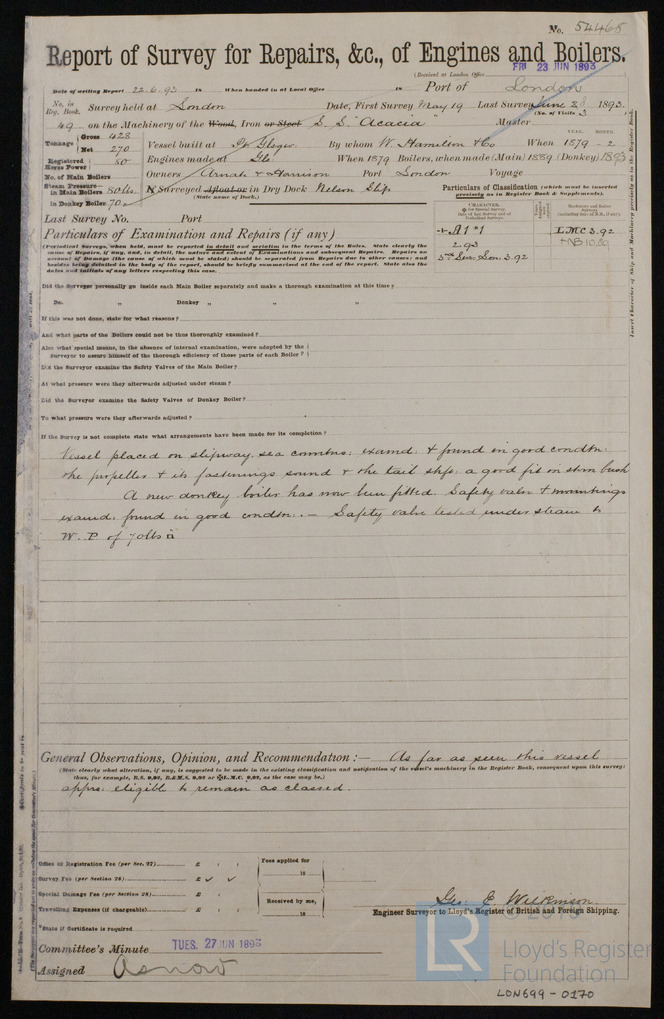 No. 54468
Report of Survey for Repairs, &c., of Engines and Boilers.
(Received at London Office FRI 23 JUN 1893
Date of writing Report 22.6.93 18 When handed in at Local Office 18 Port of London
No. in Reg. Book. Survey held at London Date, First Survey May 19 Last Survey June 1893.
(No. of Visits 3)
49 on the Machinery of the Wood, Iron or Steel S.S. "Acacia" Master
YEAR. MONTH.
Tonnage Gross 428 Net 270 Vessel built at Pt Glasgow By whom W. Hamilton & Co When 1879 - 2
Registered Horse Power 80 Engines made at Gls When 1879 Boilers, when made (Main) 1889 (Donkey) 1893
No. of Main Boilers Owners & Harrison Port London Voyage
Steam Pressure in Main Boilers 80 lbs. If Surveyed Afloat or in Dry Dock Nelson Slip.
(State name of Dock.)
in Donkey Boiler 70
Particulars of Classification (which must be inserted precisely as in Register Book & Supplements).
Last Survey No. Port
Particulars of Examination and Repairs (if any)
CHARACTER.
+ A1 "1
2.93
LMC 3.92
+NB 10.89
(Periodical Surveys, when held, must be reported in detail and seriatim in the terms of the Rules. State clearly the
cause of Repairs, if any, and, in detail, the nature and extent of Examinations and subsequent Repairs. Repairs on
account of Damage (the cause of which must be stated) should be separated from Repairs due to other causes; and
besides being detailed in the body of the report, should be briefly summarised at the end of the report. State also the
dates and initials of any letters respecting this case.
Did the Surveyor personally go inside each Main Boiler separately and make a thorough examination at this time?
Do. " Donkey " " "
If this was not done, state for what reasons?
And what parts of the Boilers could not be thoroughly examined?
Also what special means, in the absence of internal examination, were adopted by the
Surveyor to assure himself of the thorough efficiency of those parts of each Boiler?
Did the Surveyor examine the Safety Valves of the Main Boiler?
At what pressure were they afterwards adjusted under steam?
Did the Surveyor examine the Safety Valves of Donkey Boiler?
To what pressure were they afterwards adjusted?
If the Survey is not complete state what arrangements have been made for its completion?
Vessel placed on slipway, sea conntns: examd: & found in good condtn:
the propeller & its fastenings sound & the tail shft: a good fit in stern bush
A new donkey boiler has now been fitted. Safety valve & mountings
examd: found in good condtn: — Safety valve tested under steam to
W.P of 70 lbs □"
General Observations, Opinion, and Recommendation :— As far as seen this vessel
(State clearly what alteration, if any, is suggested to be made in the existing classification and notification of the vessel's machinery in the Register Book, consequent upon this survey;
thus, for example, B.S. 9,92, B.&M.S. 9,92 or ✠L.M.C. 9,92, as the case may be.)
apprs: eligible to remain as classed.
Office or Registration Fee (per Sec. 27) £
Survey Fee (per Section 28) £
Special Damage Fee (per Section 28) £
Travelling Expenses (if chargeable) £
Fees applied for
18
Received by me,
18
Geo. E. Wilkinson
Engineer Surveyor to Lloyd's Register of British and Foreign Shipping.
*State if Certificate is required
Committee's Minute TUES. 27 JUN 1893
Assigned As now
LR
Lloyd's Register
Foundation
LON699-0170